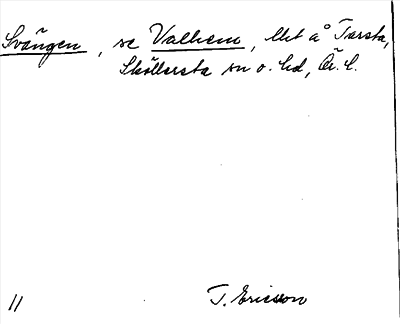 Svängen, se Valhem, lht å Tarsta,
Sköllersta sn o. hd, Ör. l.
11 T. Ericsson